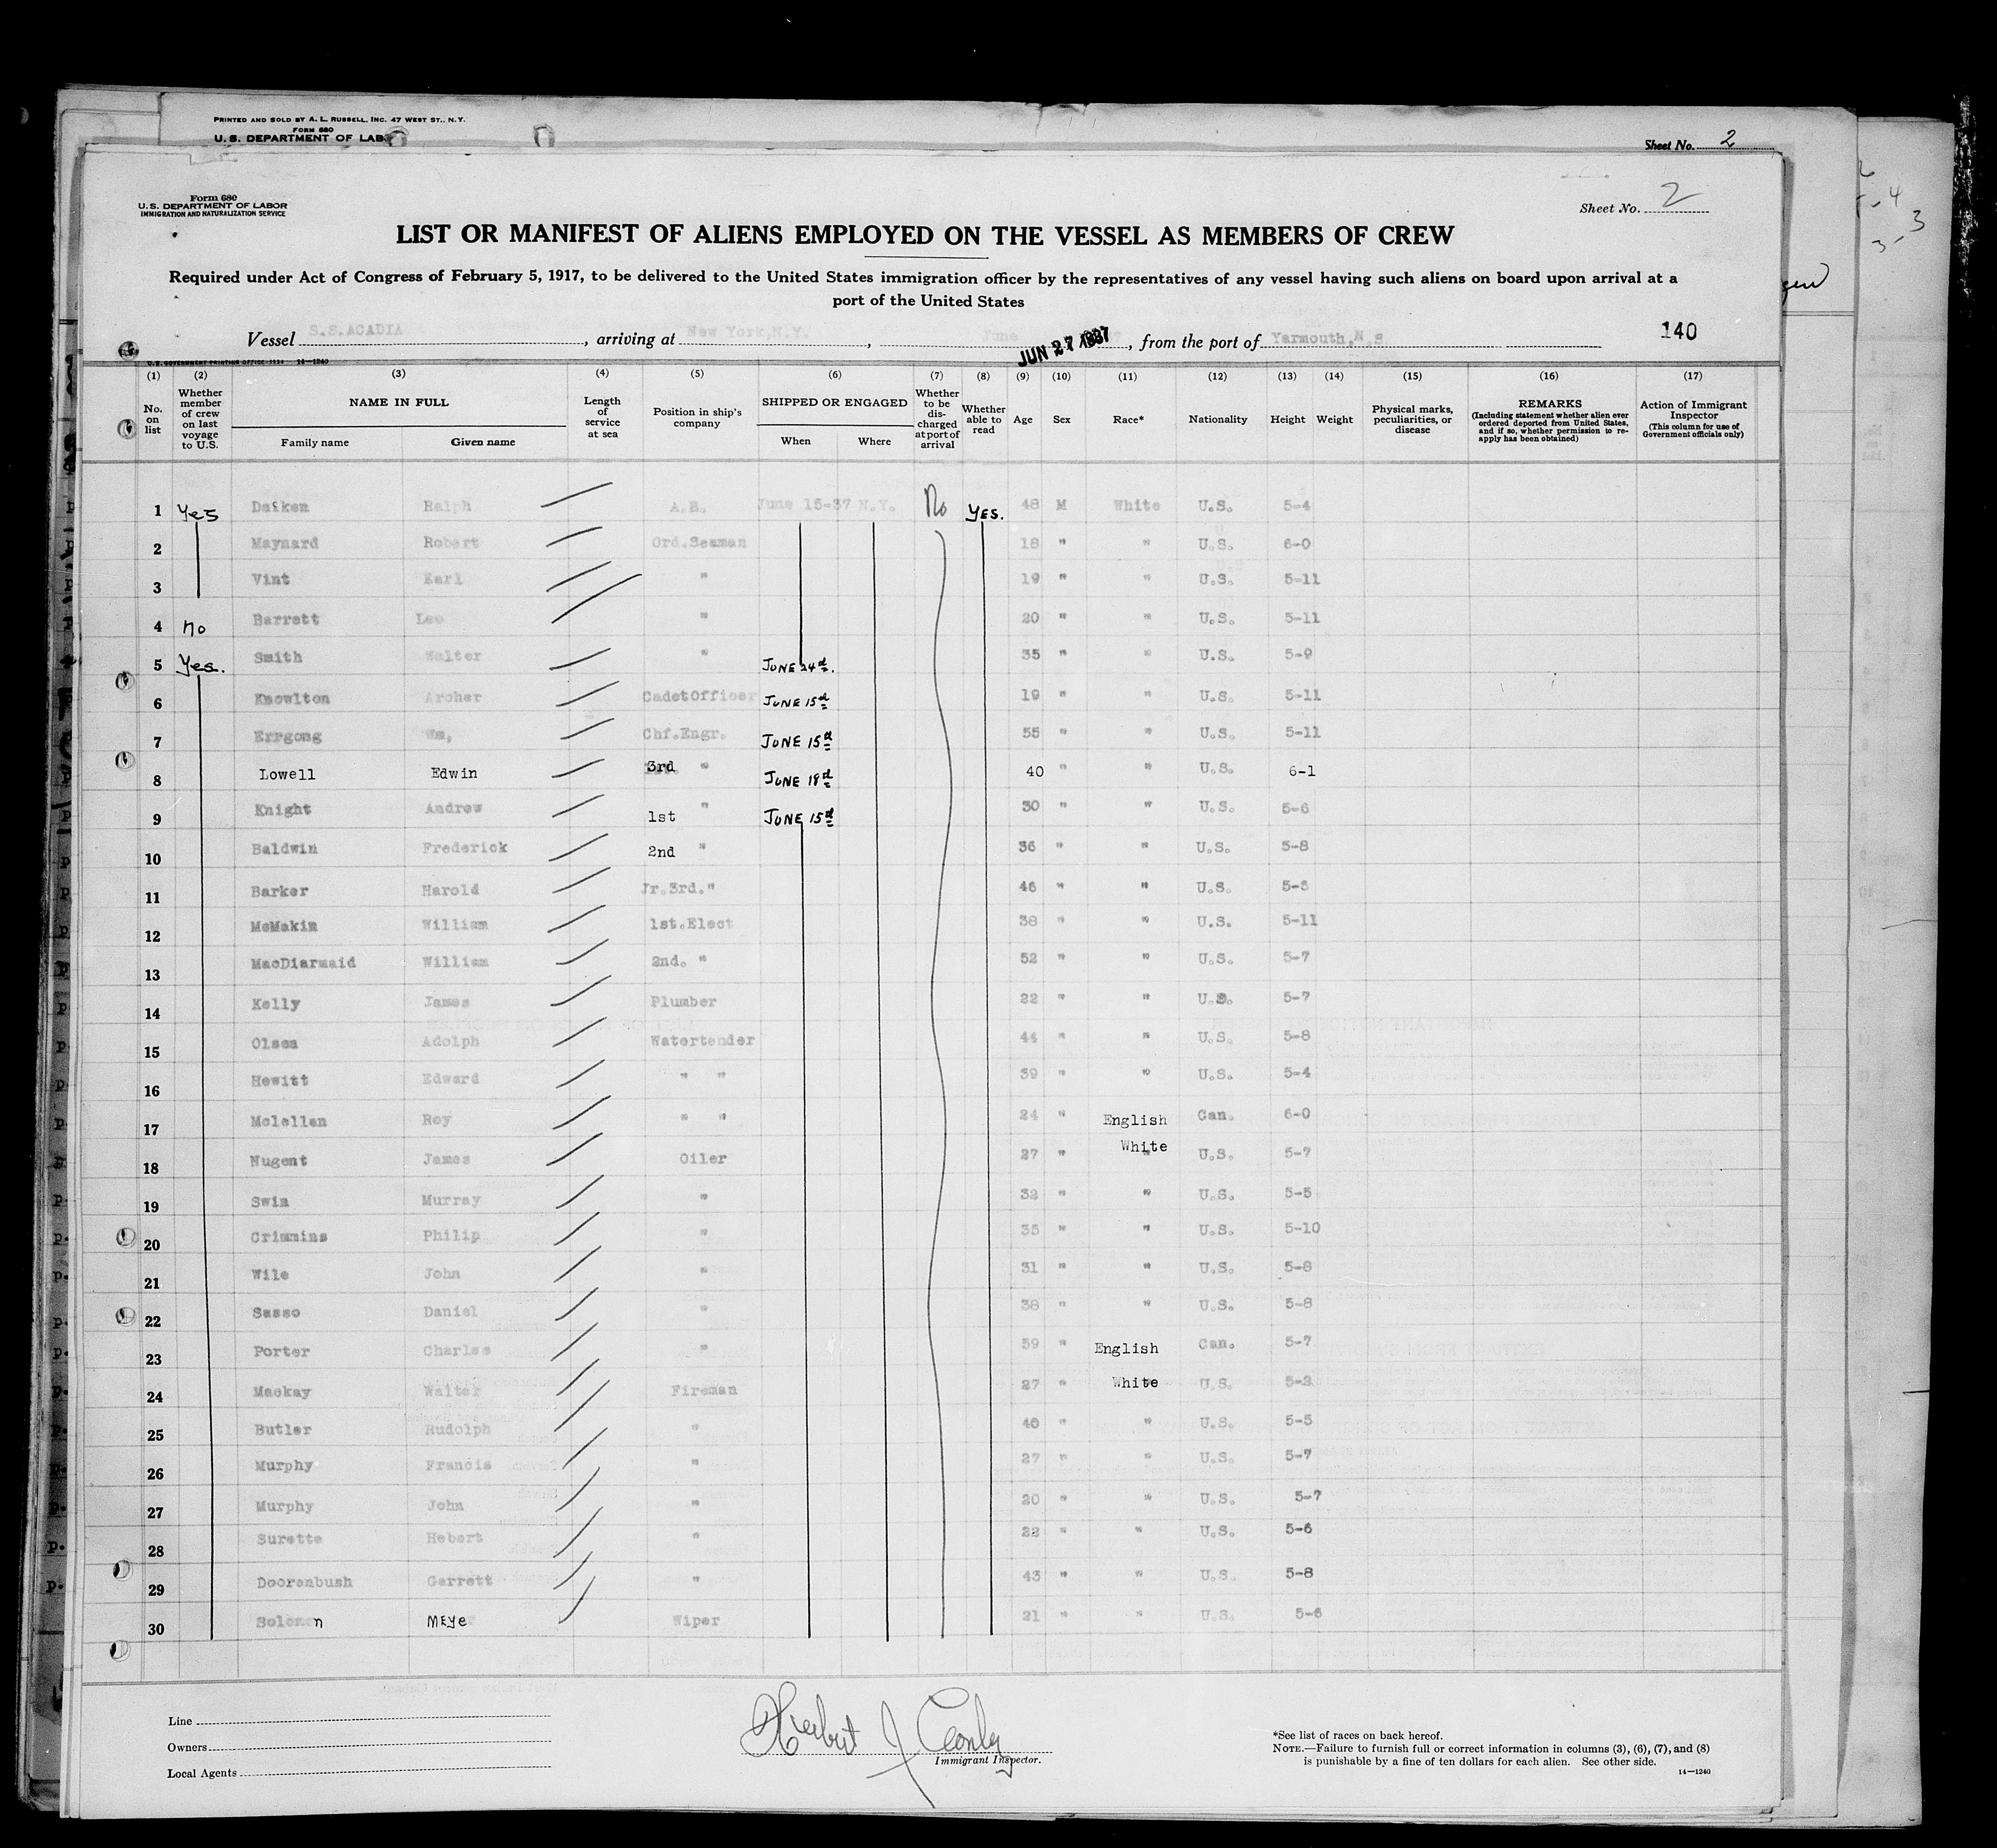 PRINTED AND SOLD BY A. L. RUSSELL, INC. 47 WEST ST., N.Y.
FORM 680
U. S. DEPARTMENT OF LAB
Sheet No. 2
Form 680
U. S. DEPARTMENT OF LABOR
IMMIGRATION AND NATURALIZATION SERVICE
Sheet No. 2
LIST OR MANIFEST OF ALIENS EMPLOYED ON THE VESSEL AS MEMBERS OF CREW
Required under Act of Congress of February 5, 1917, to be delivered to the United States immigration officer by the representatives of any vessel having such aliens on board upon arrival at a
port of the United States
Vessel S.S.ACADIA, arriving at New York,N.Y., June JUN 27 1937, from the port of Yarmouth,N.S. 140
U. S. GOVERNMENT PRINTING OFFICE: 1934 14-1240
(1) (2) (3) (4) (5) (6) (7) (8) (9) (10) (11) (12) (13) (14) (15) (16) (17)
No. on list
Whether member of crew on last voyage to U.S.
NAME IN FULL
Family name Given name
Length of service at sea
Position in ship's company
SHIPPED OR ENGAGED
When Where
Whether to be discharged at port of arrival
Whether able to read
Age Sex Race* Nationality Height Weight
Physical marks, peculiarities, or disease
REMARKS
(Including statement whether alien ever ordered deported from United States, and if so, whether permission to reapply has been obtained)
Action of Immigrant Inspector
(This column for use of Government officials only)
1 Yes Daiken Ralph A.B. June 15-37 N.Y. No YES. 48 M White U.S. 5-4
2 Maynard Robert Ord.Seaman 18 " " U.S. 6-0
3 Vint Earl " 19 " " U.S. 5-11
4 no Barrett Leo " 20 " " U.S. 5-11
5 Yes. Smith Walter " JUNE 24th. 35 " " U.S. 5-9
6 Knowlton Archer CadetOfficer JUNE 15th 19 " " U.S. 5-11
7 Errgong Wm, Chf.Engr. JUNE 15th 55 " " U.S. 5-11
8 Lowell Edwin 3rd " JUNE 18th 40 " " U.S. 6-1
9 Knight Andrew 1st " JUNE 15th 30 " " U.S. 5-6
10 Baldwin Frederick 2nd " 36 " " U.S. 5-8
11 Barker Harold Jr.3rd." 46 " " U.S.
12 McMakin William 1st.Elect 38 " " U.S. 5-11
13 MacDiarmaid William 2nd. " 52 " " U.S. 5-7
14 Kelly James Plumber 22 " " U.S. 5-7
15 Olsen Adolph Watertender 44 " " U.S. 5-8
16 Hewitt Edward " " 39 " " U.S. 5-4
17 Mclellan Roy " " 24 " English Can. 6-0
18 Nugent James Oiler 27 " White U.S. 5-7
19 Swim Murray " 32 " " U.S. 5-5
20 Crimmins Philip " 35 " " U.S. 5-10
21 Wile John " 31 " " U.S. 5-8
22 Sasso Daniel " 38 " " U.S. 5-8
23 Porter Charles " 59 " English Can. 5-7
24 Mackay Walter Fireman 27 " White U.S.
25 Butler Rudolph " 40 " " U.S. 5-5
26 Murphy Francis " 27 " " U.S. 5-7
27 Murphy John " 20 " " U.S. 5-7
28 Surette Hebert " 22 " " U.S. 5-6
29 Doorenbush Garrett " 43 " " U.S. 5-8
30 Solomon MEYer Wiper 21 " " U.S. 5-6
Line
Owners
Local Agents
Herbert J Conly
Immigrant Inspector.
*See list of races on back hereof.
NOTE.—Failure to furnish full or correct information in columns (3), (6), (7), and (8)
is punishable by a fine of ten dollars for each alien. See other side.
14—1240